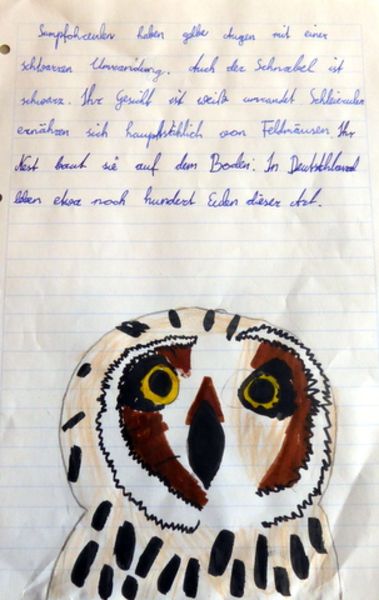 Sumpfohreulen haben gelbe Augen mit einer
schwarzen Umrandung. Auch der Schnabel ist
schwarz. Ihr Gesicht ist weiß umrandet Schleiereulen
ernähren sich hauptsächlich von Feldmäusen. Ihr
Nest baut sie auf dem Boden. In Deutschland
leben etwa noch hundert Eulen dieser Art.